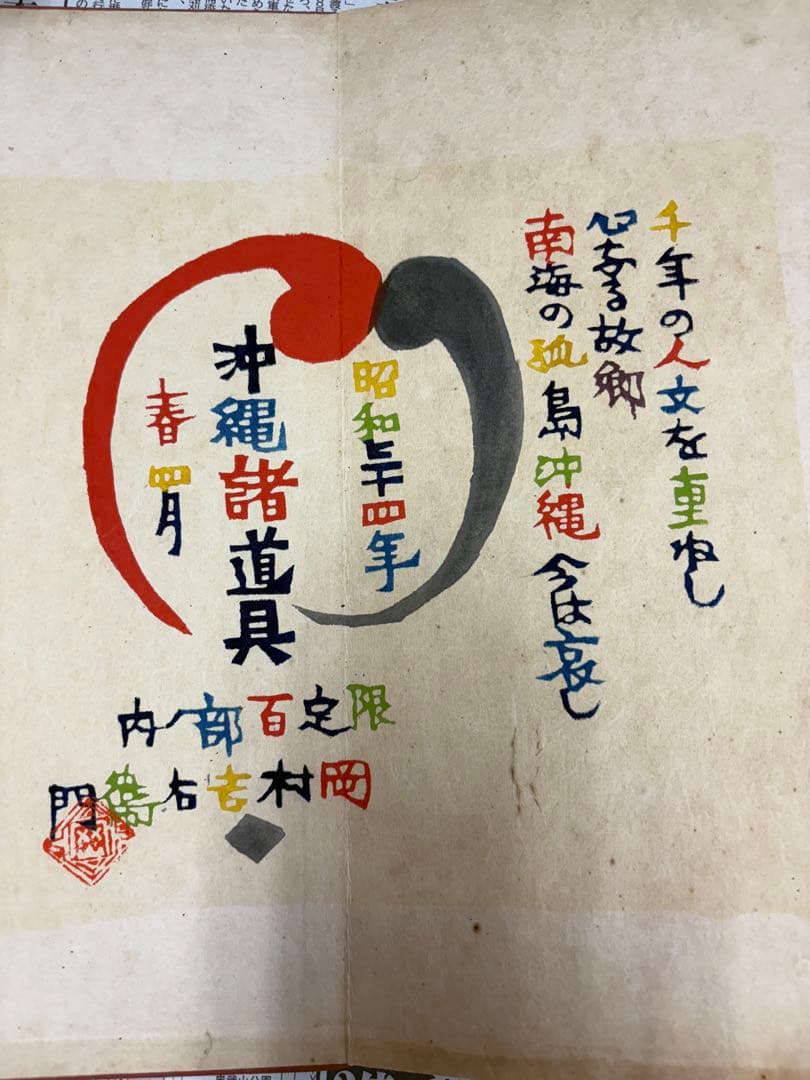 千年の人文を重ねし
心 故郷
南海の孤島沖縄今は哀し
昭和 十四年
沖縄諸道具
春四月
限定百部ノ内
岡村吉右衛門